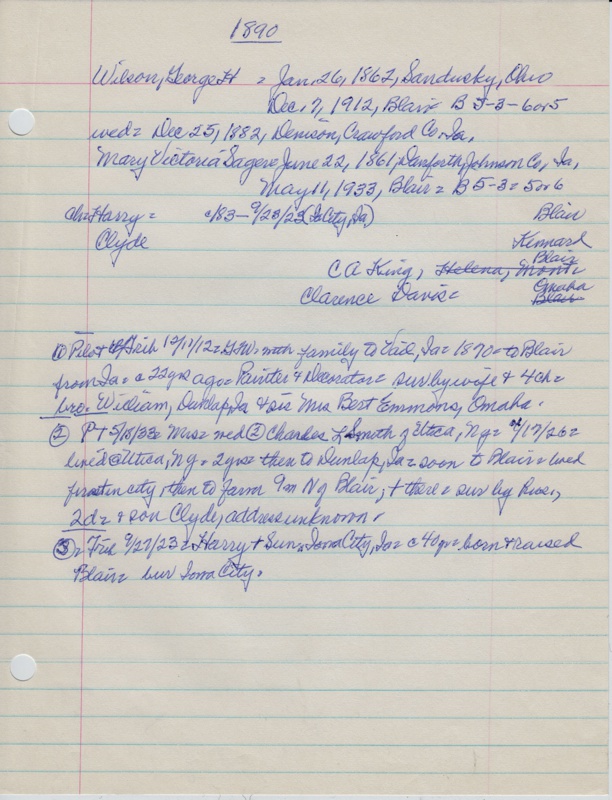 1890
Wilson, George H = Jan. 26, 1862, Sandusky, Ohio
Dec. 7, 1912, Blair = B 5-3-6or5
wed = Dec 25, 1882, Denison, Crawford Co. Ia.
Mary Victoria Sagere June 22, 1861, Danforth, Johnson Co., Ia,
May 11, 1933, Blair = B 5-3=5or6
ch = Harry = c/83 – 9/23/23 (Ia City, Ia) Blair
Clyde Kennard
C A King, Helena, Mont = Blair
Clarence Davis = Omaha Blair
① Pilot & Trib 12/11/12 = G.H.W. with family to Vail, Ia = 1890 = to Blair
from Ia = c 22yrs ago = Painter & Decorator = sur by wife & 4 ch =
bro = William, Dunlap, Ia & sis Mrs Bert Emmons, Omaha.
② P+ 5/18/33 = Mrs = wed ② Charles L Smith of Utica, Ny = /17/26 =
lived @ Utica, Ny = 2yrs = then to Dunlap, Ia = soon to Blair = lived
first in city, then to farm 9m N of Blair, + there = sur by Hus.,
2d = + son Clyde, address unknown.
③ = Trib 9/27/23 = Harry + Sun, Iowa City, Ia = c 40yr = born & raised
Blair = bur Iowa City.